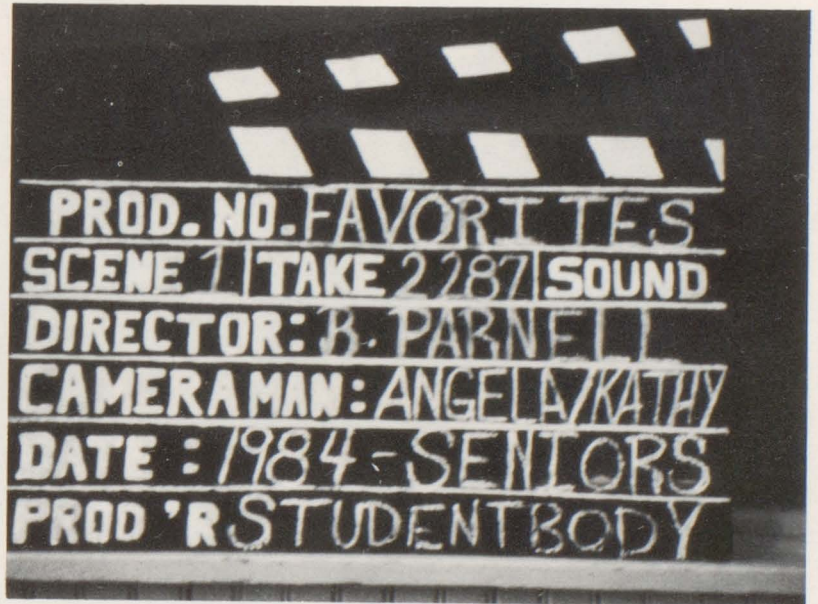 PROD. NO. FAVORITES
SCENE 1 TAKE 2287 SOUND
DIRECTOR: B. PARNELL
CAMERAMAN: ANGELA/KATHY
DATE: 1984-SENIORS
PROD'R STUDENTBODY